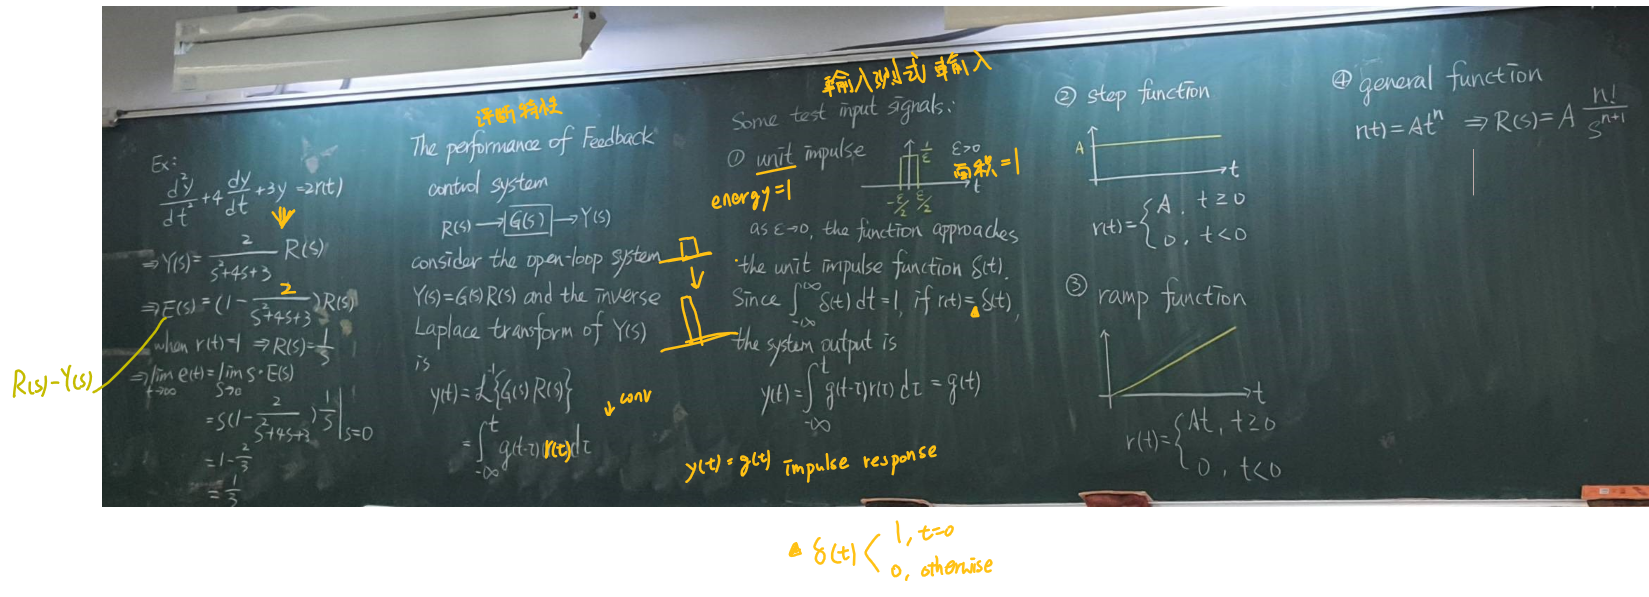 Ex:
d²y/dt² + 4 dy/dt + 3y = 2r(t)
⇒ Y(s) = 2/(s²+4s+3) R(s)
⇒ E(s) = (1 - 2/(s²+4s+3)) R(s)
R(s)-Y(s)
when r(t)=1 ⇒ R(s)=1/s
⇒ lim t→∞ e(t) = lim s→0 s·E(s)
= s(1 - 2/(s²+4s+3)) 1/s |s=0
= 1 - 2/3
= 1/3
评断特性
The performance of Feedback
control system
R(s) → G(s) → Y(s)
consider the open-loop system
Y(s)=G(s)R(s) and the inverse
Laplace transform of Y(s)
is
y(t) = ℒ⁻¹{G(s)R(s)}
↓ conv
= ∫_{-∞}^{t} g(t-τ) r(τ) dτ
输入测式 输入
Some test input signals:
① unit impulse
energy=1
1/ε
ε>0
面积=1
t
-ε/2 ε/2
as ε→0, the function approaches
the unit impulse function δ(t).
Since ∫_{-∞}^{∞} δ(t) dt = 1, if r(t) = δ(t),
the system output is
y(t) = ∫_{-∞}^{t} g(t-τ)r(τ) dτ = g(t)
y(t) = g(t) impulse response
δ(t) < 1, t=0
0, otherwise
② step function
A
t
r(t) = { A, t≥0
0, t<0
③ ramp function
t
r(t) = { At, t≥0
0, t<0
④ general function
r(t) = Atⁿ ⇒ R(s) = A n!/s^{n+1}